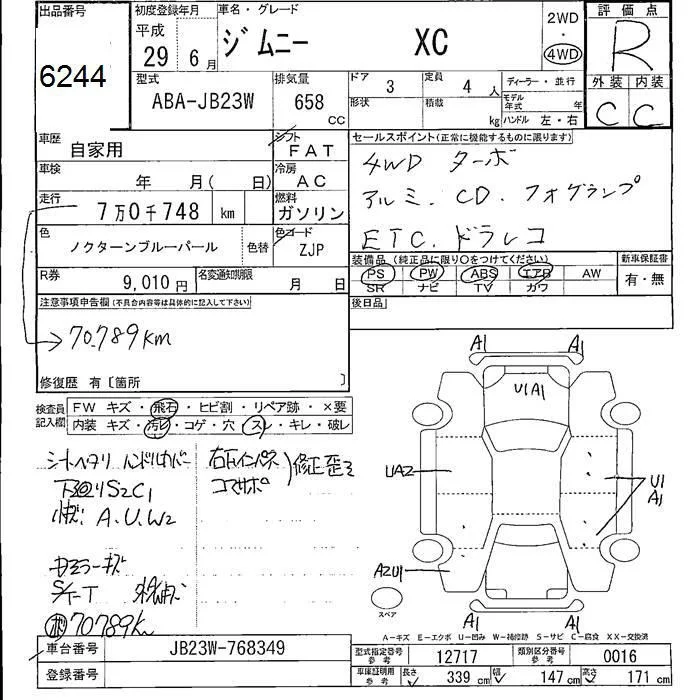 出品番号
6244
初度登録年月
平成
29年 6月
車名・グレード
ジムニー XC
2WD
・
4WD
評価点
R
外装 内装
C C
型式
ABA-JB23W
排気量
658 CC
ドア 3
定員 4 人
形状
積載 kg
ディーラー・並行
モデル年式 年
ハンドル 左・右
車歴
自家用
シフト
FAT
車検
年 月( 日)
冷房
AC
走行
7万0千748 km
燃料
ガソリン
色
ノクターンブルーパール
色替
色コード
ZJP
R券
9,010円
名変通知期限
月 日
セールスポイント(正常に機能するものに限ります)
4WD ターボ
アルミ. CD. フォグランプ
ETC. ドラレコ
装備品(純正品に限り○をつけてください)
PS PW ABS エアB AW
SR ナビ TV カワ
新車保証書
有・無
後日品
注意事項申告欄(不具合内容等は具体的に記入して下さい)
70.789km
修復歴 有〔箇所 〕
検査員記入欄
FW キズ・飛石・ヒビ割・リペア跡・×要
内装 キズ・汚レ・コゲ・穴・スレ・キレ・破レ
シートヘタリ ハンドルカバー
下廻りS2C1
小キズ: A.U.W2
右Fインパネ
コアサポ
修正歪ミ
70789Km
A1 A1
U1A1
UA2
U1
A1
A2U1
A1 A1
スペア
A-キズ E-エクボ U-凹み W-補修跡 S-サビ C-腐食 XX-交換済
車台番号
JB23W-768349
登録番号
型式指定番号
参考
12717
類別区分番号
参考
0016
車庫証明用
参考
長さ 339 cm
幅 147 cm
高さ 171 cm